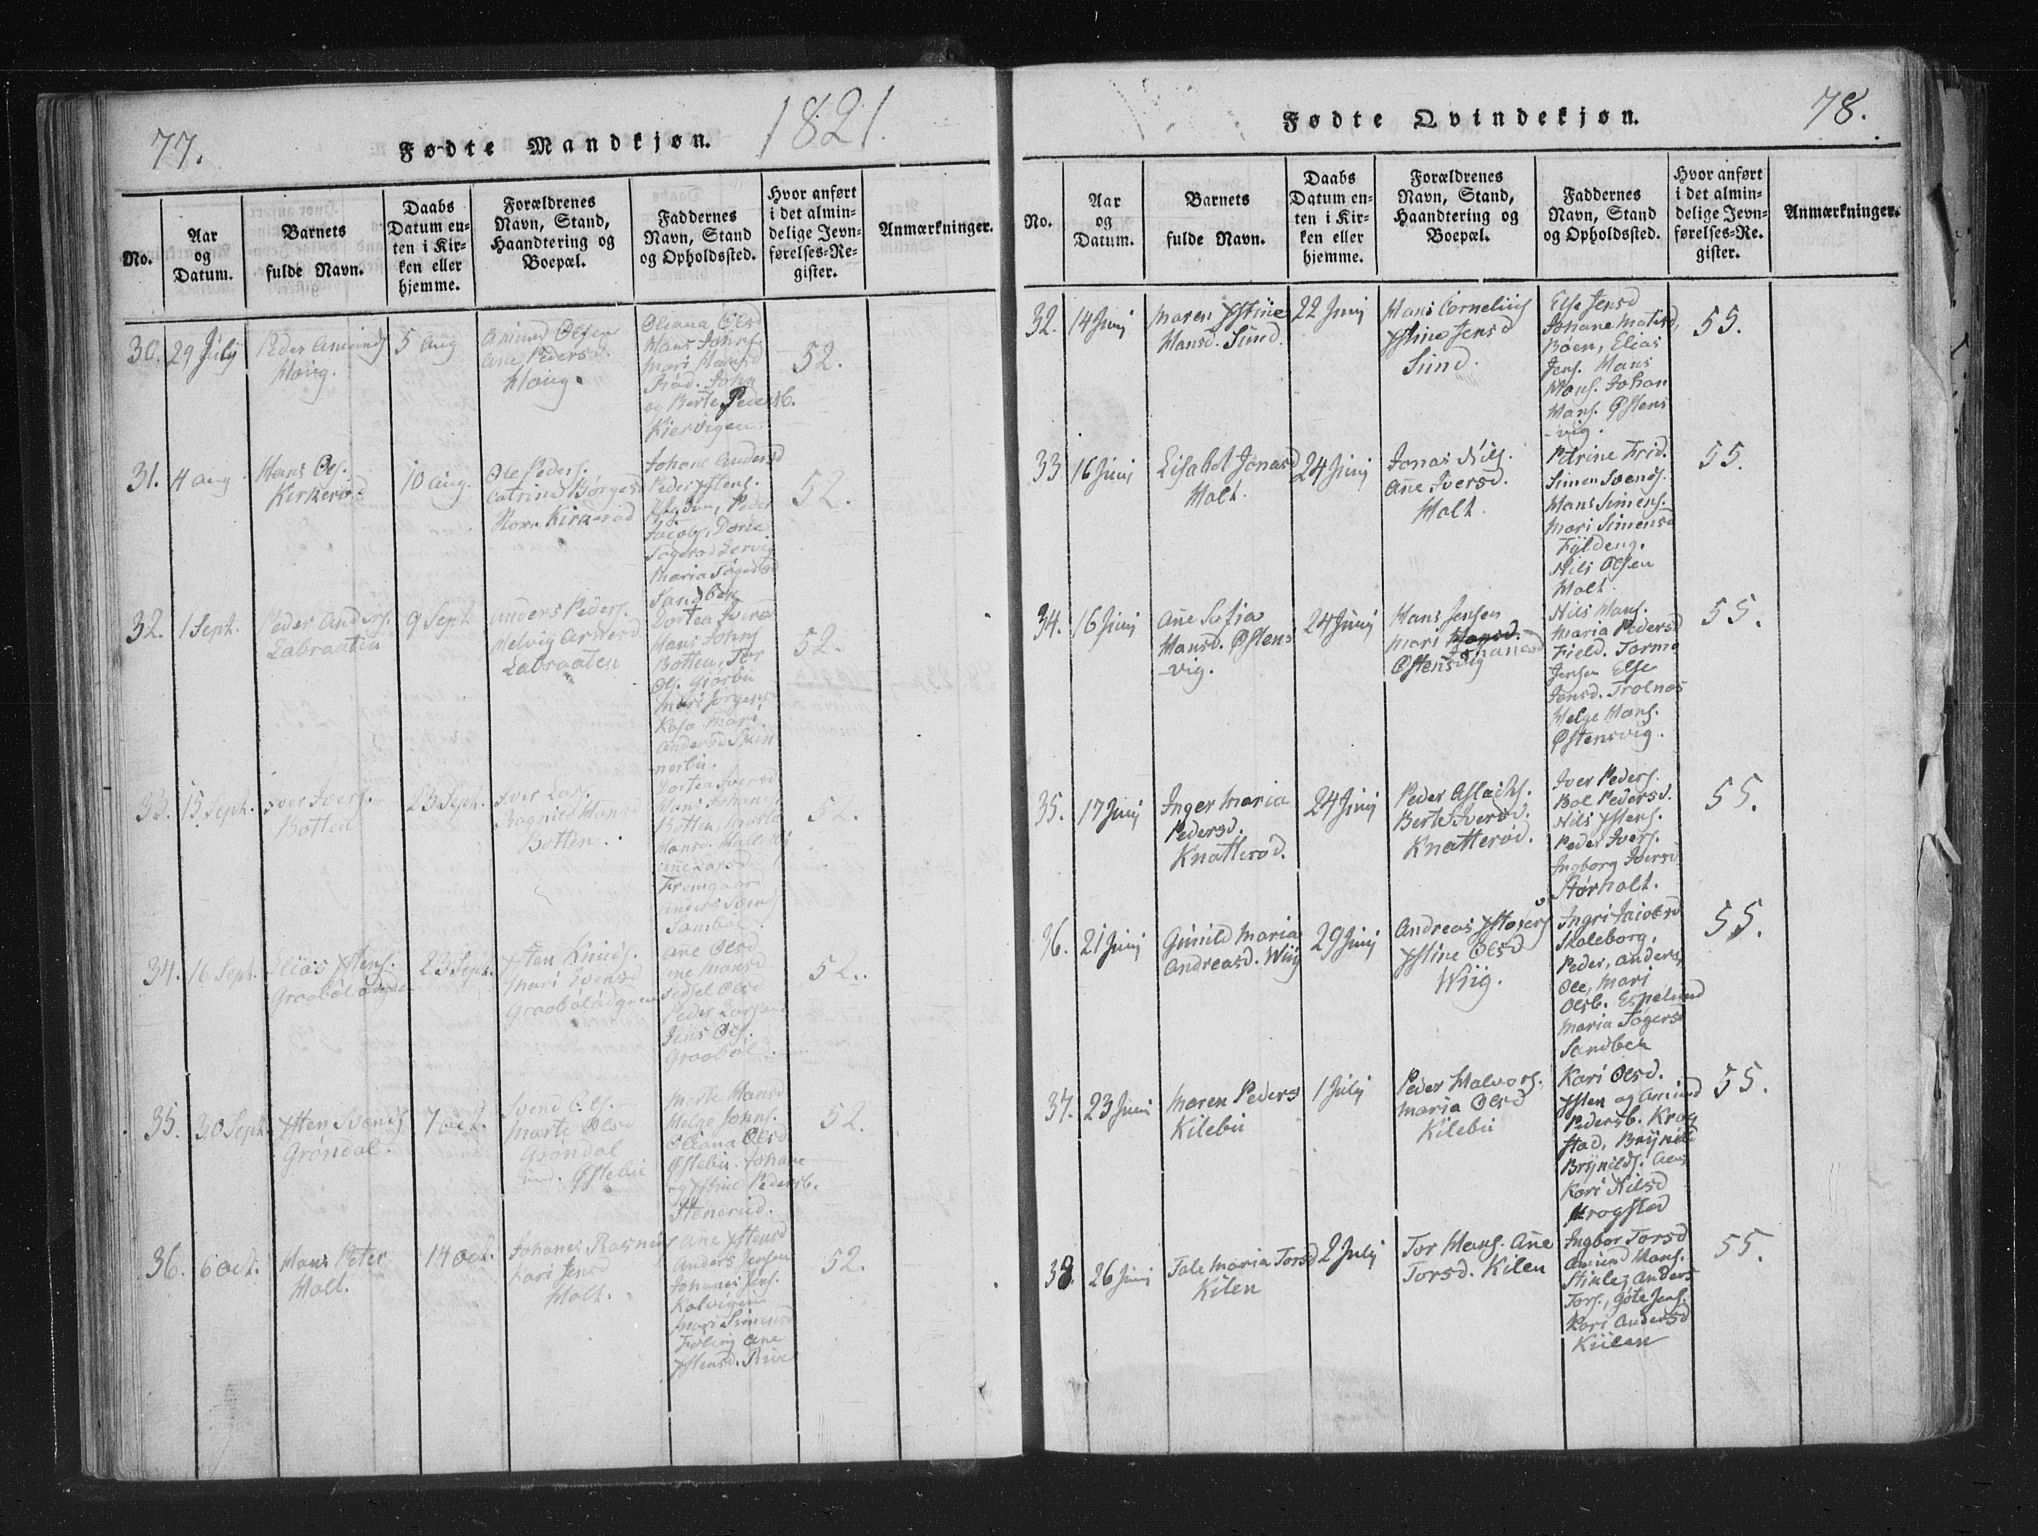 77.
Fødte Mandkjøn.
1821.
No.
Aar
og
Datum.
Barnets
fulde Navn.
Daabs
Datum en-
ten i Kir-
ken eller
hjemme.
Forældrenes
Navn, Stand,
Haandtering og
Boepæl.
Faddernes
Navn, Stand
og Opholdssted.
Hvor anført
i det almin-
delige Jevn-
førelses-Re-
gister.
Anmærkninger.
30.
29 July
Peder Amunds
Houg.
5 Aug
Amund Olsen
Ane Pedersd.
Houg.
Oleana Olsd
Hans Johns
Mari Hansd
Rød. John
og Berte Pedersb.
Kiervigen
52.
31.
4 Aug
Hans Ols.
Kirkerød
10 Aug.
Ole Peders.
Catrine Børges
Kirkerød
Johane Andersd
Peder
Peder
Jacobs,
Maria
Sandbek
52.
32.
1 Sept.
Peder Anders.
Labraaten
9 Sept
Anders Peders.
Helvig
Labraaten
Dortea Iversd
Hans Johns
Botten, Tor
Ols. Grøsbu
Mari
Mari
Andersd Skin
nerbu.
52.
33.
15 Sept.
Iver Ivers.
Botten
23 Sept.
Iver Lars.
Ragnild Hansd
Botten.
Dortea Iversd
Hans Johans
Botten, Marte
Hansd.
Ane Larsd
Anders
52.
34.
16 Sept.
Elias Ystens.
Graabøl
23 Sept.
Ysten Knuds.
Mari Svensd
Graabøl
Ane Olsd
Ane Hansd
Sedsel Olsd
Peder Larsen
Jens Ols.
Graabøl.
52.
35.
30 Sept
Ysten Svends
Grøndal.
7 Oct.
Svend Ols.
Marte Olsd
Grøndal
ind. Østebu
Marte Hansd
Helge Johns.
Oleana Olsd
Østebu. Johane
og Ystine Pedersb.
Stenerud.
52.
36.
6 Oct.
Hans Peter
Holt.
14 Oct.
Johanes Rasmus
Kari Jensd
Holt.
Ane Ystensd
Anders Jensen
Johanes Jens.
Kalvigen
Mari Simensd
Føling Ane
Ystensd. Riue
52.
Fødte Qvindekjøn.
78.
No.
Aar
og
Datum.
Barnets
fulde Navn.
Daabs
Datum en-
ten i Kir-
ken eller
hjemme.
Forældrenes
Navn, Stand,
Haandtering og
Boepæl.
Faddernes
Navn, Stand
og Opholdssted.
Hvor anført
i det almin-
delige Jevn-
førelses-Re-
gister.
Anmærkninger.
32.
14 Junj
Maren Ystine
Hansd. Sund.
22 Junj
Hans Cornelius
Ystine Jensd
Sund.
Else Jensd
Johane Matisd,
Bøen, Elias
Jens. Hans
Hans. Johan
Hans. Østens
-vig.
55.
33
16 Junj
Lisabet Jonasd
Holt.
24 Junj
Jonas Nils.
Ane Iversd.
Holt.
Petrine Frid.
Simen Svends.
Hans Simens.
Mari Simensd
Fyldeng.
Nils Olsen
Holt.
55.
34.
16 Junj
Ane Sofia
Hansd. Østens
-vig.
24 Junj
Hans Jensen
Mari Hansd.
Johanesd
Østensvig
Nils Hans.
Maria Pedersd
Field. Tarmo
Jensen Else
Jonsd. Trolnæs
Helge Hans.
Østensvig.
55.
35.
17 Junj
Inger Maria
Pedersd.
Knatterød.
24 Junj
Peder Aslachs.
Berte Iversd.
Knatterød.
Iver Peders.
Bol Pedersd.
Nils Ystens.
Peder Ivers.
Ingborg Iversd
Størholt.
55.
36.
21 Junj
Gunild Maria
Andreasd. Wiig
29 Junj
Andreas
Ystine Olsd
Wiig.
Ingri Jacobsd
Skaleborg,
Peder, Anders,
Ole, Mari
Olsb. Espelund
Maria Tøgersd
Sandbek
55.
37.
23 Junj
Maren Peders
Kilebu
1 July
Peder Halvors.
Maria Olsd
Kilebu
Kari Olsd.
Ysten og Amund
Pedersb. Krog
stad, Brynild
Brynilds.
Kari Nilsd
Krogstad
55.
38.
26 Junj
Tale Maria Torsd
Kilen
2 July
Tor Hans. Ane
Torsd. Kilen
Ingbor Torsd
Amund Hans.
Anders
Tors., Gøte Jens.
Kari Andersd
Kiilen
55.